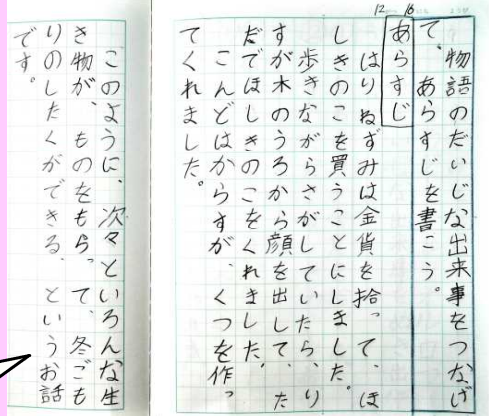 12 16
物語のだいじな出来事をつなげ
て、あらすじを書こう。
あらすじ
はりねずみは金貨を拾って、ほ
しきのこを買うことにしました。
歩きながらさがしていたら、り
すが木のうろから顔を出して、た
だでほしきのこをくれました。
こんどはからすが、くつを作っ
てくれました。
このように、次々といろんな生
き物が、ものをもらって、冬ごも
りのしたくができる、というお話
です。